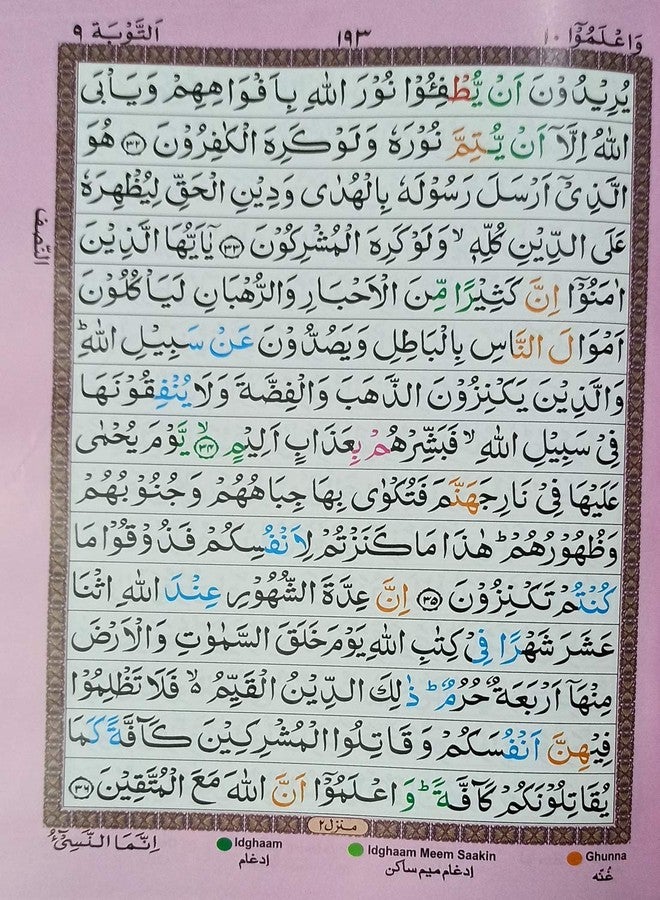 وَاعْلَمُوْٓا ١٠ ١٩٣ اَلتَّوْبَة ٩
يُرِيْدُوْنَ اَنْ يُّطْفِـُٔوْا نُوْرَ اللّٰهِ بِاَفْوَاهِهِمْ وَيَاْبَى
اللّٰهُ اِلَّاۤ اَنْ يُّتِمَّ نُوْرَهٗ وَلَوْ كَرِهَ الْكٰفِرُوْنَ ﴿٣٢﴾ هُوَ
الَّذِيْۤ اَرْسَلَ رَسُوْلَهٗ بِالْهُدٰى وَدِيْنِ الْحَقِّ لِيُظْهِرَهٗ
عَلَى الدِّيْنِ كُلِّهٖ ۙ وَلَوْ كَرِهَ الْمُشْرِكُوْنَ ﴿٣٣﴾ يٰۤاَيُّهَا الَّذِيْنَ
اٰمَنُوْۤا اِنَّ كَثِيْرًا مِّنَ الْاَحْبَارِ وَالرُّهْبَانِ لَيَاْكُلُوْنَ
اَمْوَالَ النَّاسِ بِالْبَاطِلِ وَيَصُدُّوْنَ عَنْ سَبِيْلِ اللّٰهِ ؕ
وَالَّذِيْنَ يَكْنِزُوْنَ الذَّهَبَ وَالْفِضَّةَ وَلَا يُنْفِقُوْنَهَا
فِيْ سَبِيْلِ اللّٰهِ ۙ فَبَشِّرْهُمْ بِعَذَابٍ اَلِيْمٍ ۙ﴿٣٤﴾ يَّوْمَ يُحْمٰى
عَلَيْهَا فِيْ نَارِ جَهَنَّمَ فَتُكْوٰى بِهَا جِبَاهُهُمْ وَجُنُوْبُهُمْ
وَظُهُوْرُهُمْ ؕ هٰذَا مَا كَنَزْتُمْ لِاَنْفُسِكُمْ فَذُوْقُوْا مَا
كُنْتُمْ تَكْنِزُوْنَ ﴿٣٥﴾ اِنَّ عِدَّةَ الشُّهُوْرِ عِنْدَ اللّٰهِ اثْنَا
عَشَرَ شَهْرًا فِيْ كِتٰبِ اللّٰهِ يَوْمَ خَلَقَ السَّمٰوٰتِ وَالْاَرْضَ
مِنْهَاۤ اَرْبَعَةٌ حُرُمٌ ؕ ذٰلِكَ الدِّيْنُ الْقَيِّمُ ۙ۬ فَلَا تَظْلِمُوْا
فِيْهِنَّ اَنْفُسَكُمْ وَقَاتِلُوا الْمُشْرِكِيْنَ كَآفَّةً كَمَا
يُقَاتِلُوْنَكُمْ كَآفَّةً ؕ وَاعْلَمُوْۤا اَنَّ اللّٰهَ مَعَ الْمُتَّقِيْنَ ﴿٣٦﴾
النّصف
منزل ٢
اِنَّمَا النَّسِيْٓءُ
Idghaam
إدغام
Idghaam Meem Saakin
إدغام ميم ساكن
Ghunna
غُنّه